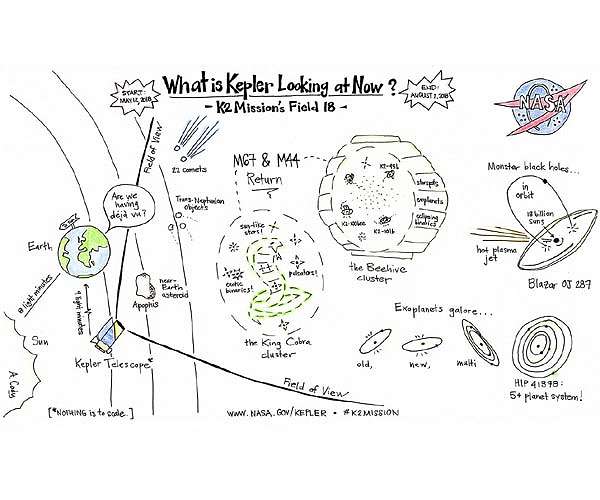 START:
MAY 12, 2018
What is Kepler Looking at Now?
- K2 Mission's Field 18 -
END:
AUGUST 2, 2018
NASA
Field of View
22 comets
M67 & M44
Return
Are we
having
déjà vu?
Trans-Neptunian
objects
Earth
8 light minutes
9 light minutes
near-
Earth
asteroid
Apophis
Sun
Kepler Telescope*
A. Cody
sun-like
stars
exotic
binaries!
pulsators!
the King Cobra
cluster
K2-95b
K2-101b
starspots
exoplanets
eclipsing
binaries
the Beehive
cluster
Monster black holes...
in
orbit
18 billion
suns
hot plasma
jet
Blazar OJ 287
Exoplanets galore...
old,
new,
multi
HIP 41378:
5+ planet system!
Field of View
[*NOTHING is to scale.]
WWW.NASA.GOV/KEPLER • #K2MISSION